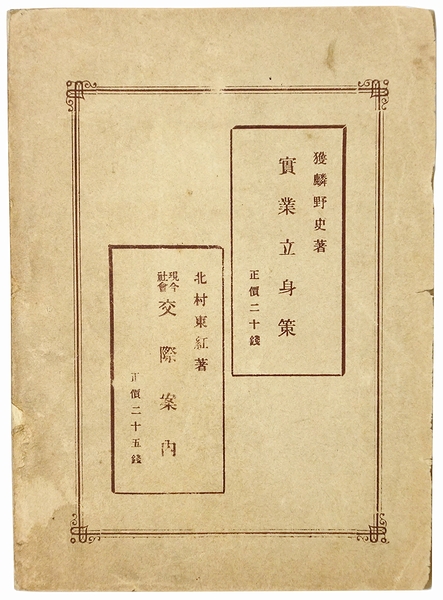 獲麟野史著
實業立身策
正價二十錢
北村東紅著
現今社會交際案内
正價二十五錢